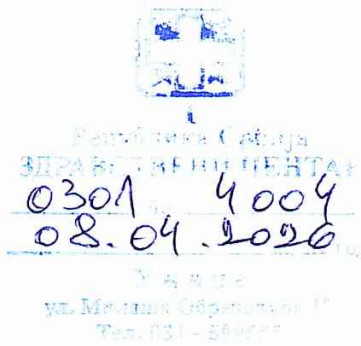 Република Србија
ЗДРАВСТВЕНИ ЦЕНТАР
0301 бр. 4004
08.04.2026
ул. Милоша Обреновића
Тел. 031 -